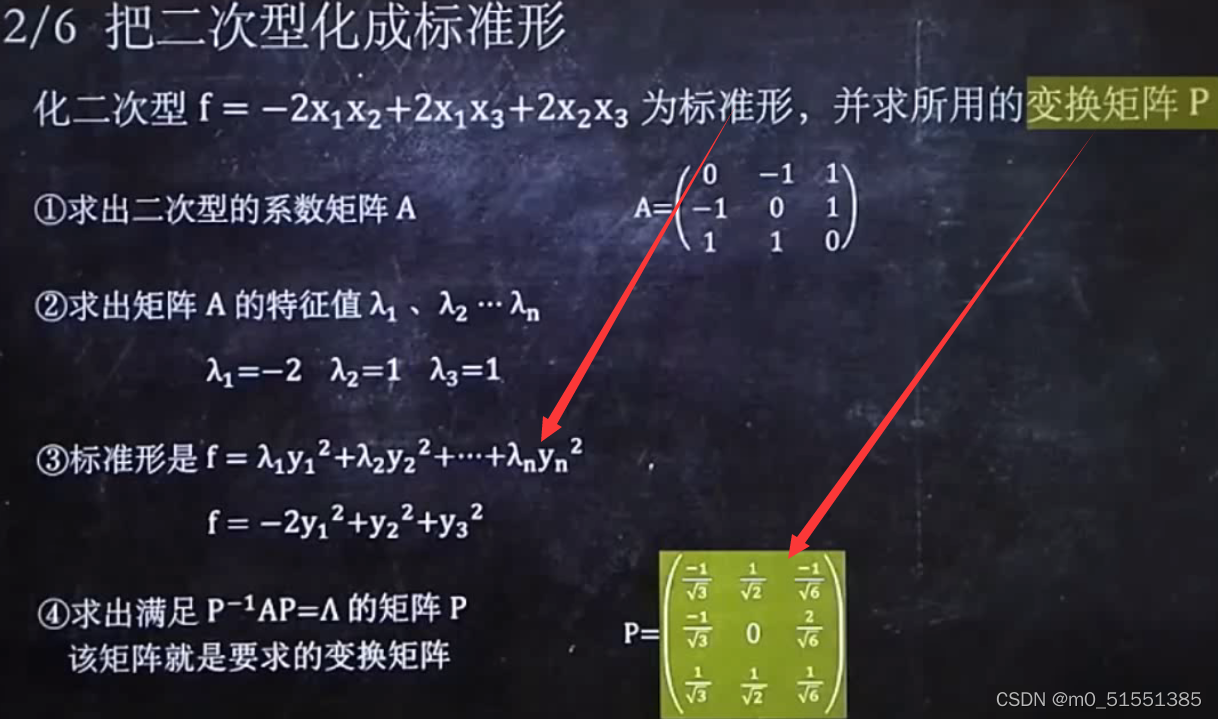 2/6 把二次型化成标准形
化二次型 f = −2x₁x₂+2x₁x₃+2x₂x₃ 为标准形，并求所用的变换矩阵 P
①求出二次型的系数矩阵 A
A=
0 −1 1
−1 0 1
1 1 0
②求出矩阵 A 的特征值 λ₁ 、λ₂ ⋯ λₙ
λ₁=−2 λ₂=1 λ₃=1
③标准形是 f = λ₁y₁²+λ₂y₂²+⋯+λₙyₙ²
f = −2y₁²+y₂²+y₃²
④求出满足 P⁻¹AP=Λ 的矩阵 P
该矩阵就是要求的变换矩阵
P=
−1/√3 1/√2 −1/√6
−1/√3 0 2/√6
1/√3 1/√2 1/√6
CSDN @m0_51551385